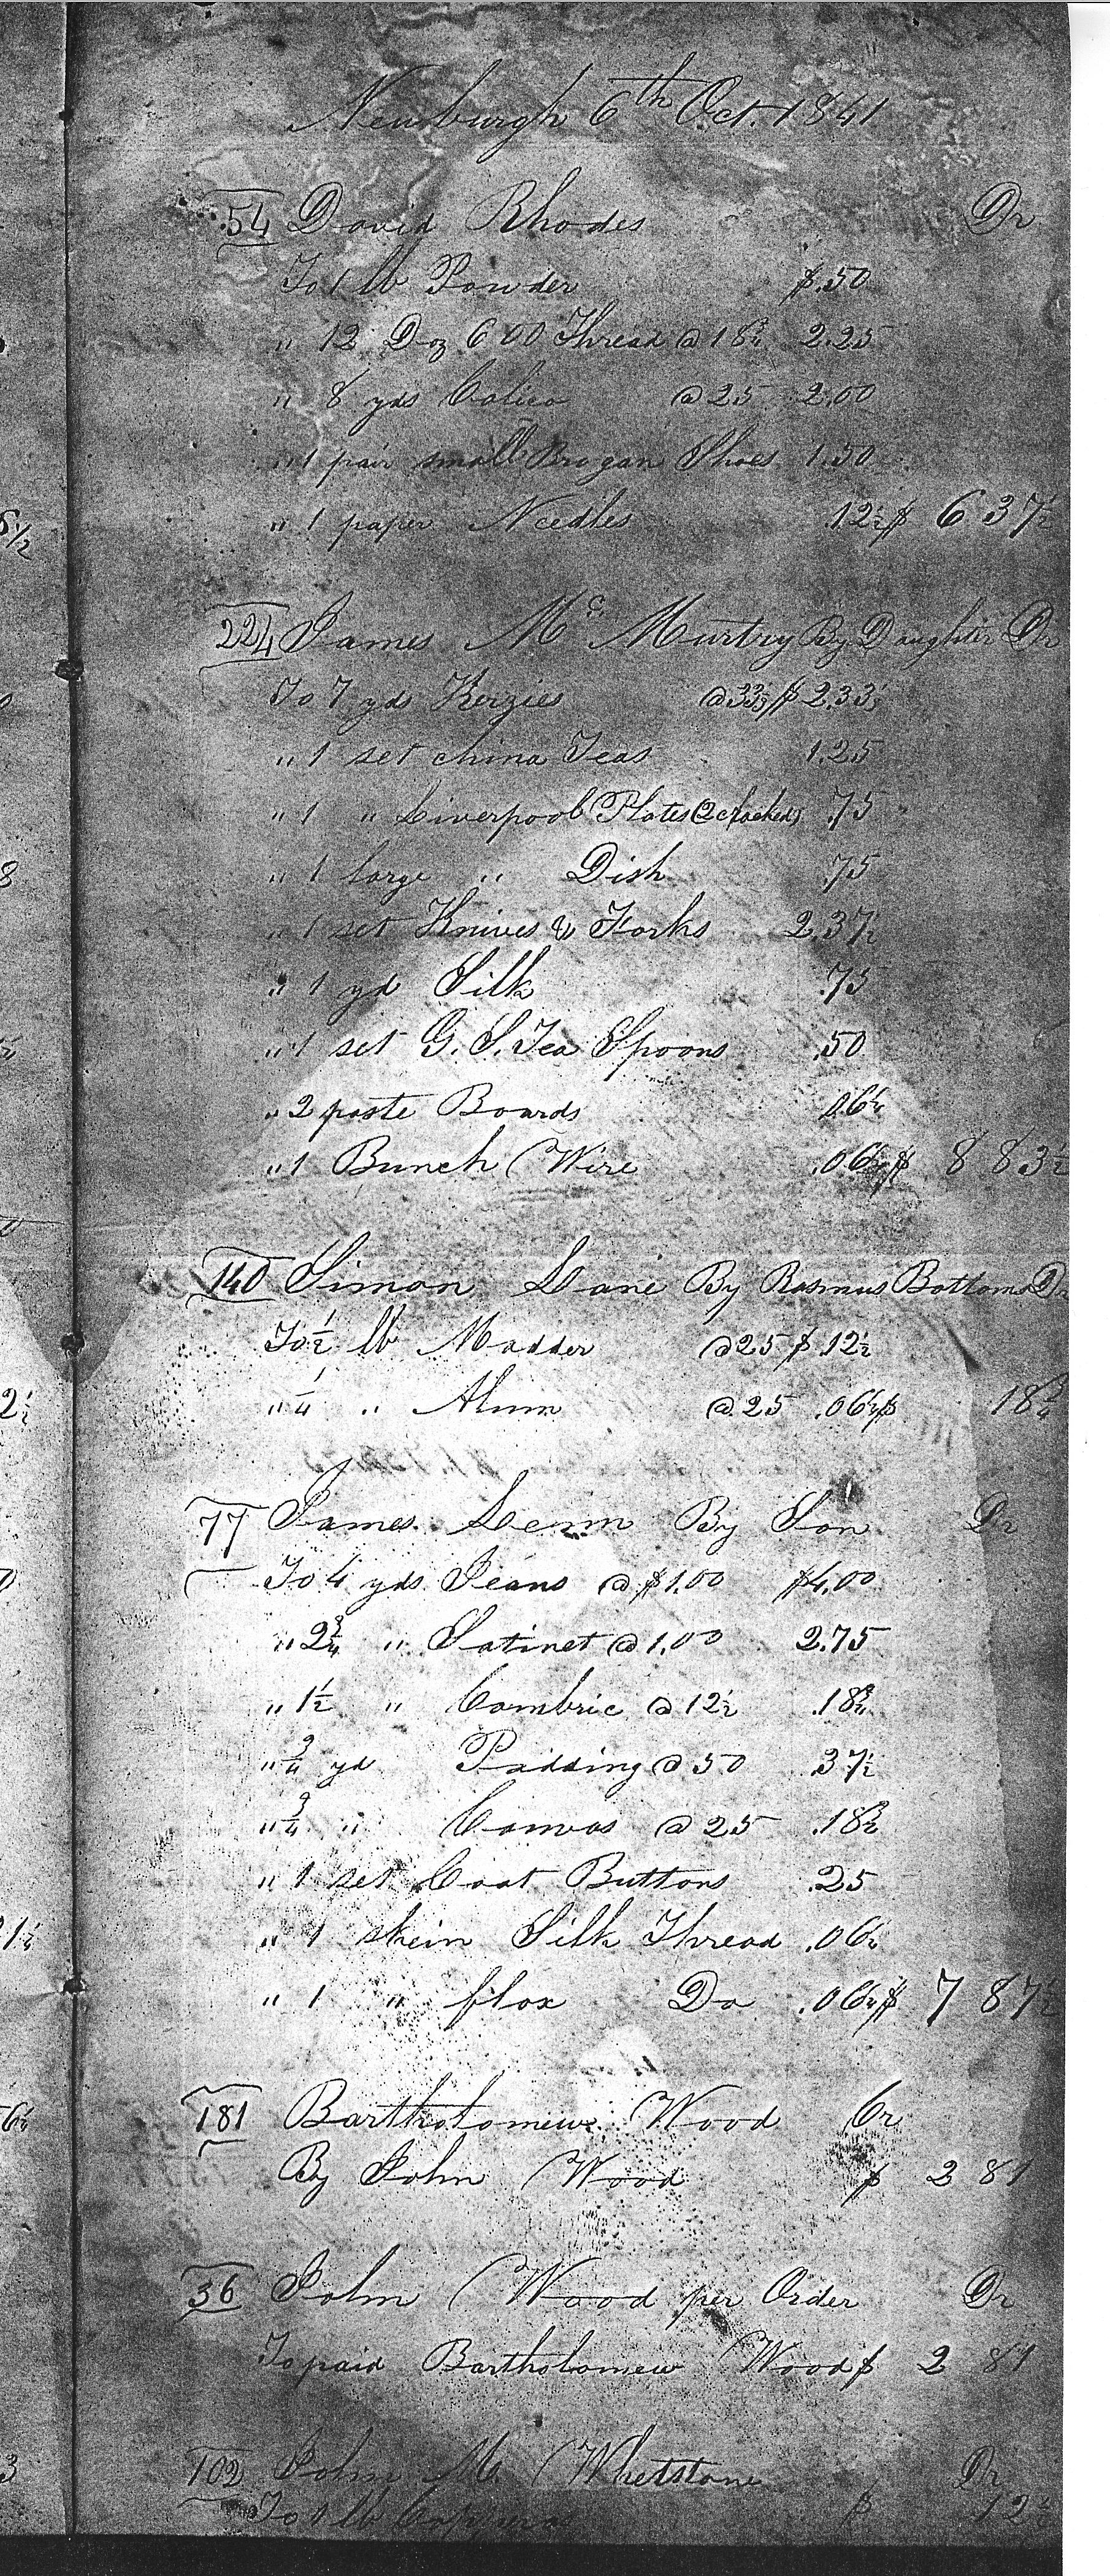 Newburgh 6th Oct. 1841
54 David Rhodes Dr
To 1 lb Powder $.50
" 12 Doz 600 Thread @ 18¾ 2.25
" 8 yds Calico @ 25 2.00
" 1 pair small Brogan Shoes 1.50
" 1 paper Needles .12½ $ 6 37½
224 James Mc Murtry By Daughter Dr
To 7 yds Kerzies @ 33⅓ $ 2.33⅓
" 1 set china Teas 1.25
" 1 " Liverpool Plates (2 cracked) .75
" 1 large " Dish .75
" 1 set Knives & Forks 2.37½
" 1 yd Silk .75
" 1 set G. S. Tea Spoons .50
" 2 paste Boards .06¼
" 1 Bunch Wire .06¼ $ 8 83½
140 Simon Lane By Rasmus Bottoms Dr
To ½ lb Madder @ 25 $ .12½
" ¼ " Alum @ 25 .06¼ $ 18¾
77 James Lemm By Son Dr
To 4 yds Jeans @ $1.00 $4.00
" 2¾ " Satinet @ 1.00 2.75
" 1½ " Cambric @ 12½ .18¾
" ¾ yd Padding @ 50 .37½
" ¾ " Canvas @ 25 .18¾
" 1 set Coat Buttons .25
" 1 skein Silk Thread .06¼
" 1 " flax Do .06¼ $ 7 87½
181 Bartholomew Wood Cr
By John Wood $ 2 81
36 John Wood per Order Dr
To paid Bartholomew Wood $ 2 81
102 John M. Whetstone Dr
To 1 lb Copperas $ 12½